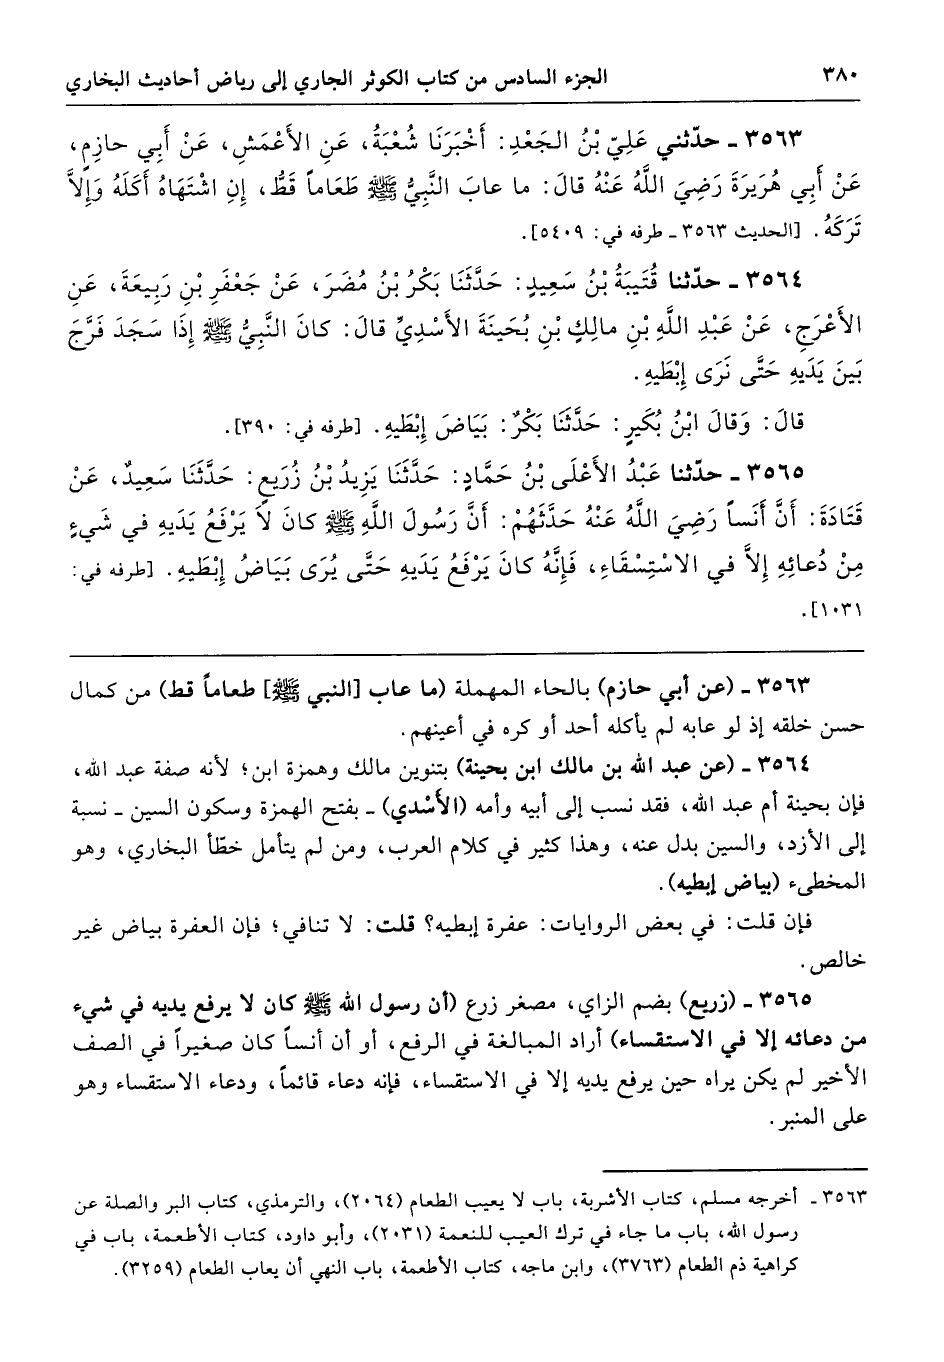 ٣٨٠ الجزء السادس من كتاب الكوثر الجاري إلى رياض أحاديث البخاري
٣٥٦٣ ـ حدّثني عَلِيّ بْنُ الجَعْدِ: أَخْبَرَنَا شُعْبَةُ، عَنِ الأَعْمَشِ، عَنْ أَبِي حازِمٍ،
عَنْ أَبِي هُرَيرَةَ رَضِيَ اللَّهُ عَنْهُ قالَ: ما عابَ النَّبِيُّ ﷺ طَعَاماً قَطُّ، إِنِ اشْتَهَاهُ أَكَلَهُ وَإِلاَّ
تَرَكَهُ. [الحديث ٣٥٦٣ ـ طرفه في: ٥٤٠٩].
٣٥٦٤ ـ حدّثنا قُتَيبَةُ بْنُ سَعِيدٍ: حَدَّثَنَا بَكْرُ بْنُ مُضَرَ، عَنْ جَعْفَرِ بْنِ رَبِيعَةَ، عَنِ
الأَعْرَجِ، عَنْ عَبْدِ اللَّهِ بْنِ مالِكٍ بْنِ بُحَينَةَ الأَسْدِيِّ قالَ: كانَ النَّبِيُّ ﷺ إِذَا سَجَدَ فَرَّجَ
بَينَ يَدَيهِ حَتَّى نَرَى إِبْطَيهِ.
قالَ: وَقالَ ابْنُ بُكَيرٍ: حَدَّثَنَا بَكْرٌ: بَيَاضَ إِبْطَيهِ. [طرفه في: ٣٩٠].
٣٥٦٥ ـ حدّثنا عَبْدُ الأَعْلَى بْنُ حَمَّادٍ: حَدَّثَنَا يَزِيدُ بْنُ زُرَيعٍ: حَدَّثَنَا سَعِيدٌ، عَنْ
قَتَادَةَ: أَنَّ أَنَساً رَضِيَ اللَّهُ عَنْهُ حَدَّثَهُمْ: أَنَّ رَسُولَ اللَّهِ ﷺ كانَ لاَ يَرْفَعُ يَدَيهِ في شَيءٍ
مِنْ دُعائِهِ إِلاَّ في الاسْتِسْقَاءِ، فَإِنَّهُ كانَ يَرْفَعُ يَدَيهِ حَتَّى يُرَى بَيَاضُ إِبْطَيهِ. [طرفه في:
١٠٣١].
٣٥٦٣ ـ (عن أبي حازم) بالحاء المهملة (ما عاب [النبي ﷺ] طعاماً قط) من كمال
حسن خلقه إذ لو عابه لم يأكله أحد أو كره في أعينهم.
٣٥٦٤ ـ (عن عبد الله بن مالك ابن بحينة) بتنوين مالك وهمزة ابن؛ لأنه صفة عبد الله،
فإن بحينة أم عبد الله، فقد نسب إلى أبيه وأمه (الأَسْدي) ـ بفتح الهمزة وسكون السين ـ نسبة
إلى الأزد، والسين بدل عنه، وهذا كثير في كلام العرب، ومن لم يتأمل خطّأ البخاري، وهو
المخطىء (بياض إبطيه).
فإن قلت: في بعض الروايات: عفرة إبطيه؟ قلت: لا تنافي؛ فإن العفرة بياض غير
خالص.
٣٥٦٥ ـ (زريع) بضم الزاي، مصغر زرع (أن رسول الله ﷺ كان لا يرفع يديه في شيء
من دعائه إلا في الاستقساء) أراد المبالغة في الرفع، أو أن أنساً كان صغيراً في الصف
الأخير لم يكن يراه حين يرفع يديه إلا في الاستقساء، فإنه دعاء قائماً، ودعاء الاستقساء وهو
على المنبر.
٣٥٦٣ ـ أخرجه مسلم، كتاب الأشربة، باب لا يعيب الطعام (٢٠٦٤)، والترمذي، كتاب البر والصلة عن
رسول الله، باب ما جاء في ترك العيب للنعمة (٢٠٣١)، وأبو داود، كتاب الأطعمة، باب في
كراهية ذم الطعام (٣٧٦٣)، وابن ماجه، كتاب الأطعمة، باب النهي أن يعاب الطعام (٣٢٥٩).